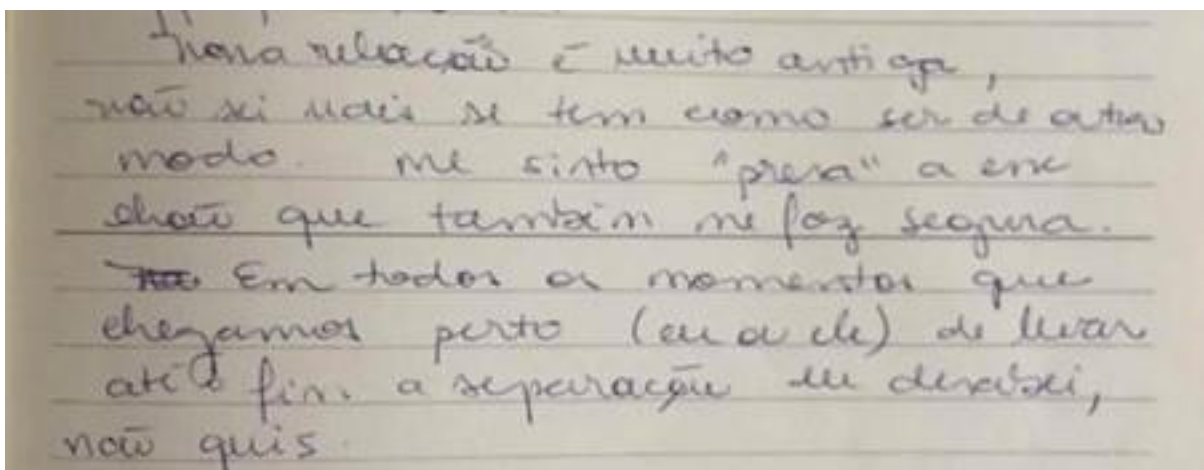 Nossa relação é muito antiga,
não sei mais se tem como ser de outro
modo. Me sinto "presa" a esse
chão que também me faz segura.
Em todos os momentos que
chegamos perto (eu ou ele) de levar
até o fim a separação eu desabei,
não quis.